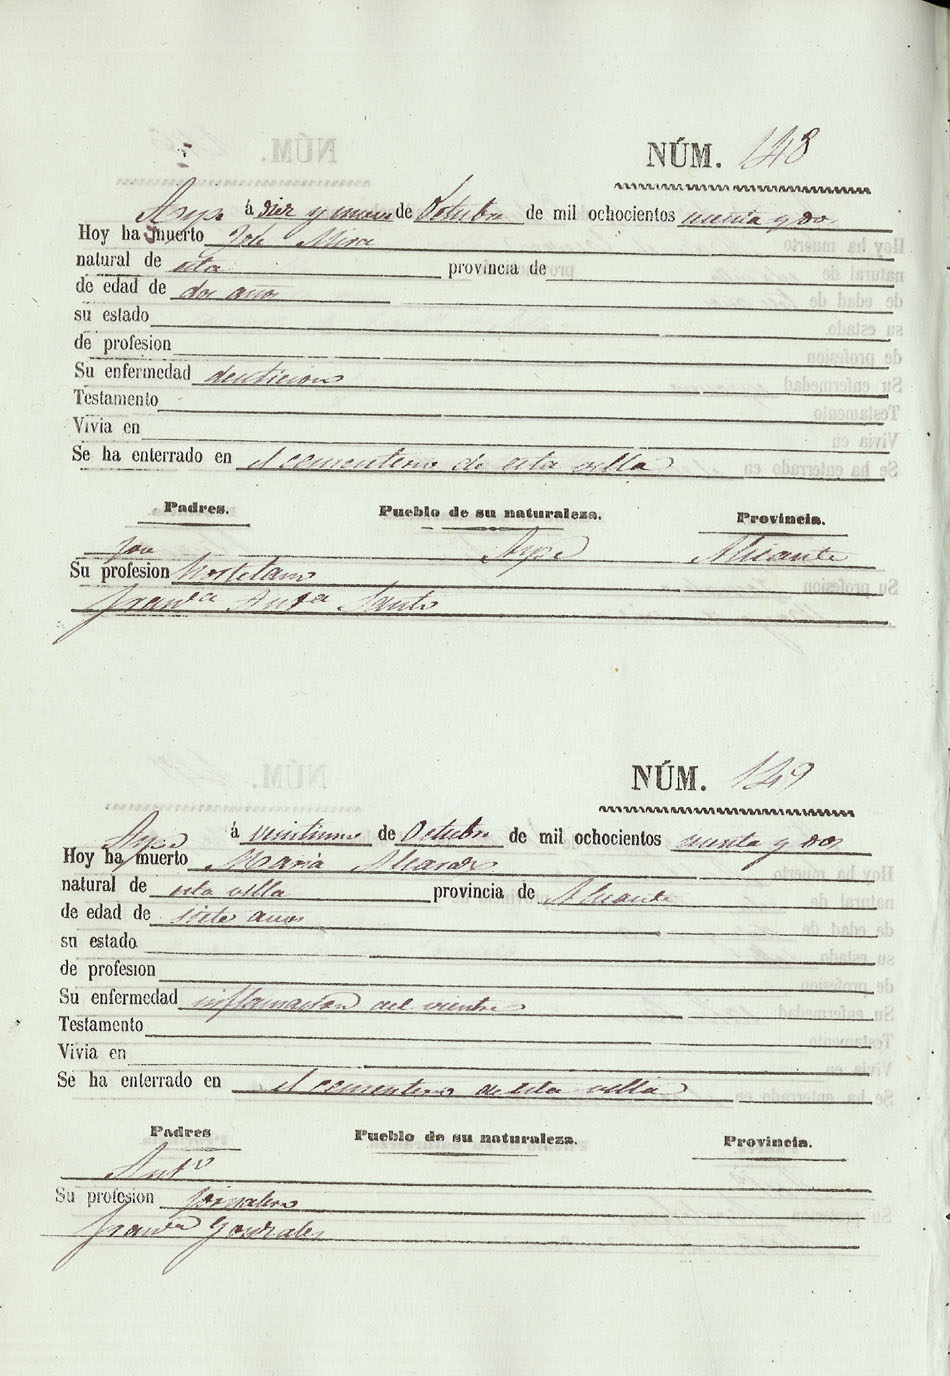 NÚM. 148
Aspe á diez y nueve de Octubre de mil ochocientos cuenta y dos
Hoy ha muerto José Mira
natural de esta provincia de
de edad de dos años
su estado
de profesion
Su enfermedad denticion
Testamento
Vivia en
Se ha enterrado en el cementerio de esta villa
Padres. Pueblo de su naturaleza. Provincia.
José Aspe Alicante
Su profesion Hortelano
Franca Anta
NÚM. 149
Aspe á de Octubre de mil ochocientos cuenta y dos
Hoy ha muerto Maria
natural de esta villa provincia de Alicante
de edad de siete años
su estado
de profesion
Su enfermedad inflamacion del vientre
Testamento
Vivia en
Se ha enterrado en el cementerio de esta villa
Padres Pueblo de su naturaleza. Provincia.
Anto
Su profesion jornalero
Franca Gonzales